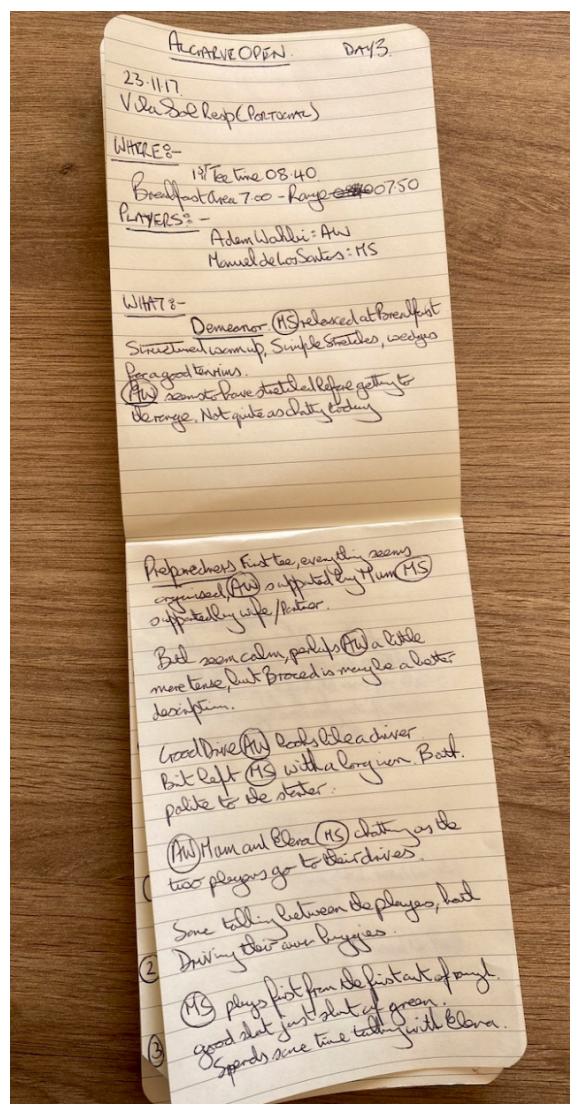 ALGARVE OPEN. DAY 3.
23.11.17.
Vila Sol Resp (PORTUGAL)
WHERE:-
1st Tee time 08.40.
Breakfast Area 7.00 - Range 07.50
PLAYERS:-
Adem Wahbi = AW
Manuel de Los Santos = MS
WHAT:-
Demeanor. MS relaxed at Breakfast
Structured warm up, Simple Stretches, wedges
for a good ten mins.
AW seems to have stretched before getting to
the range. Not quite as chatty today
Preparedness First tee, everything seems
organised, AW supported by Mum MS
supported by wife/Partner.
Both seem calm, perhaps AW a little
more tense, but Braced is maybe a better
description.
Good Drive AW looks like a driver
Bit left MS with a long iron. Both
polite to the starter.
AW Mum and Elena MS chatting as the
two players go to their drives.
Some talking between the players, both
Driving their own buggies.
MS plays first from the first cut of rough.
good shot just short of green.
Spends some time talking with Elena.
2
3